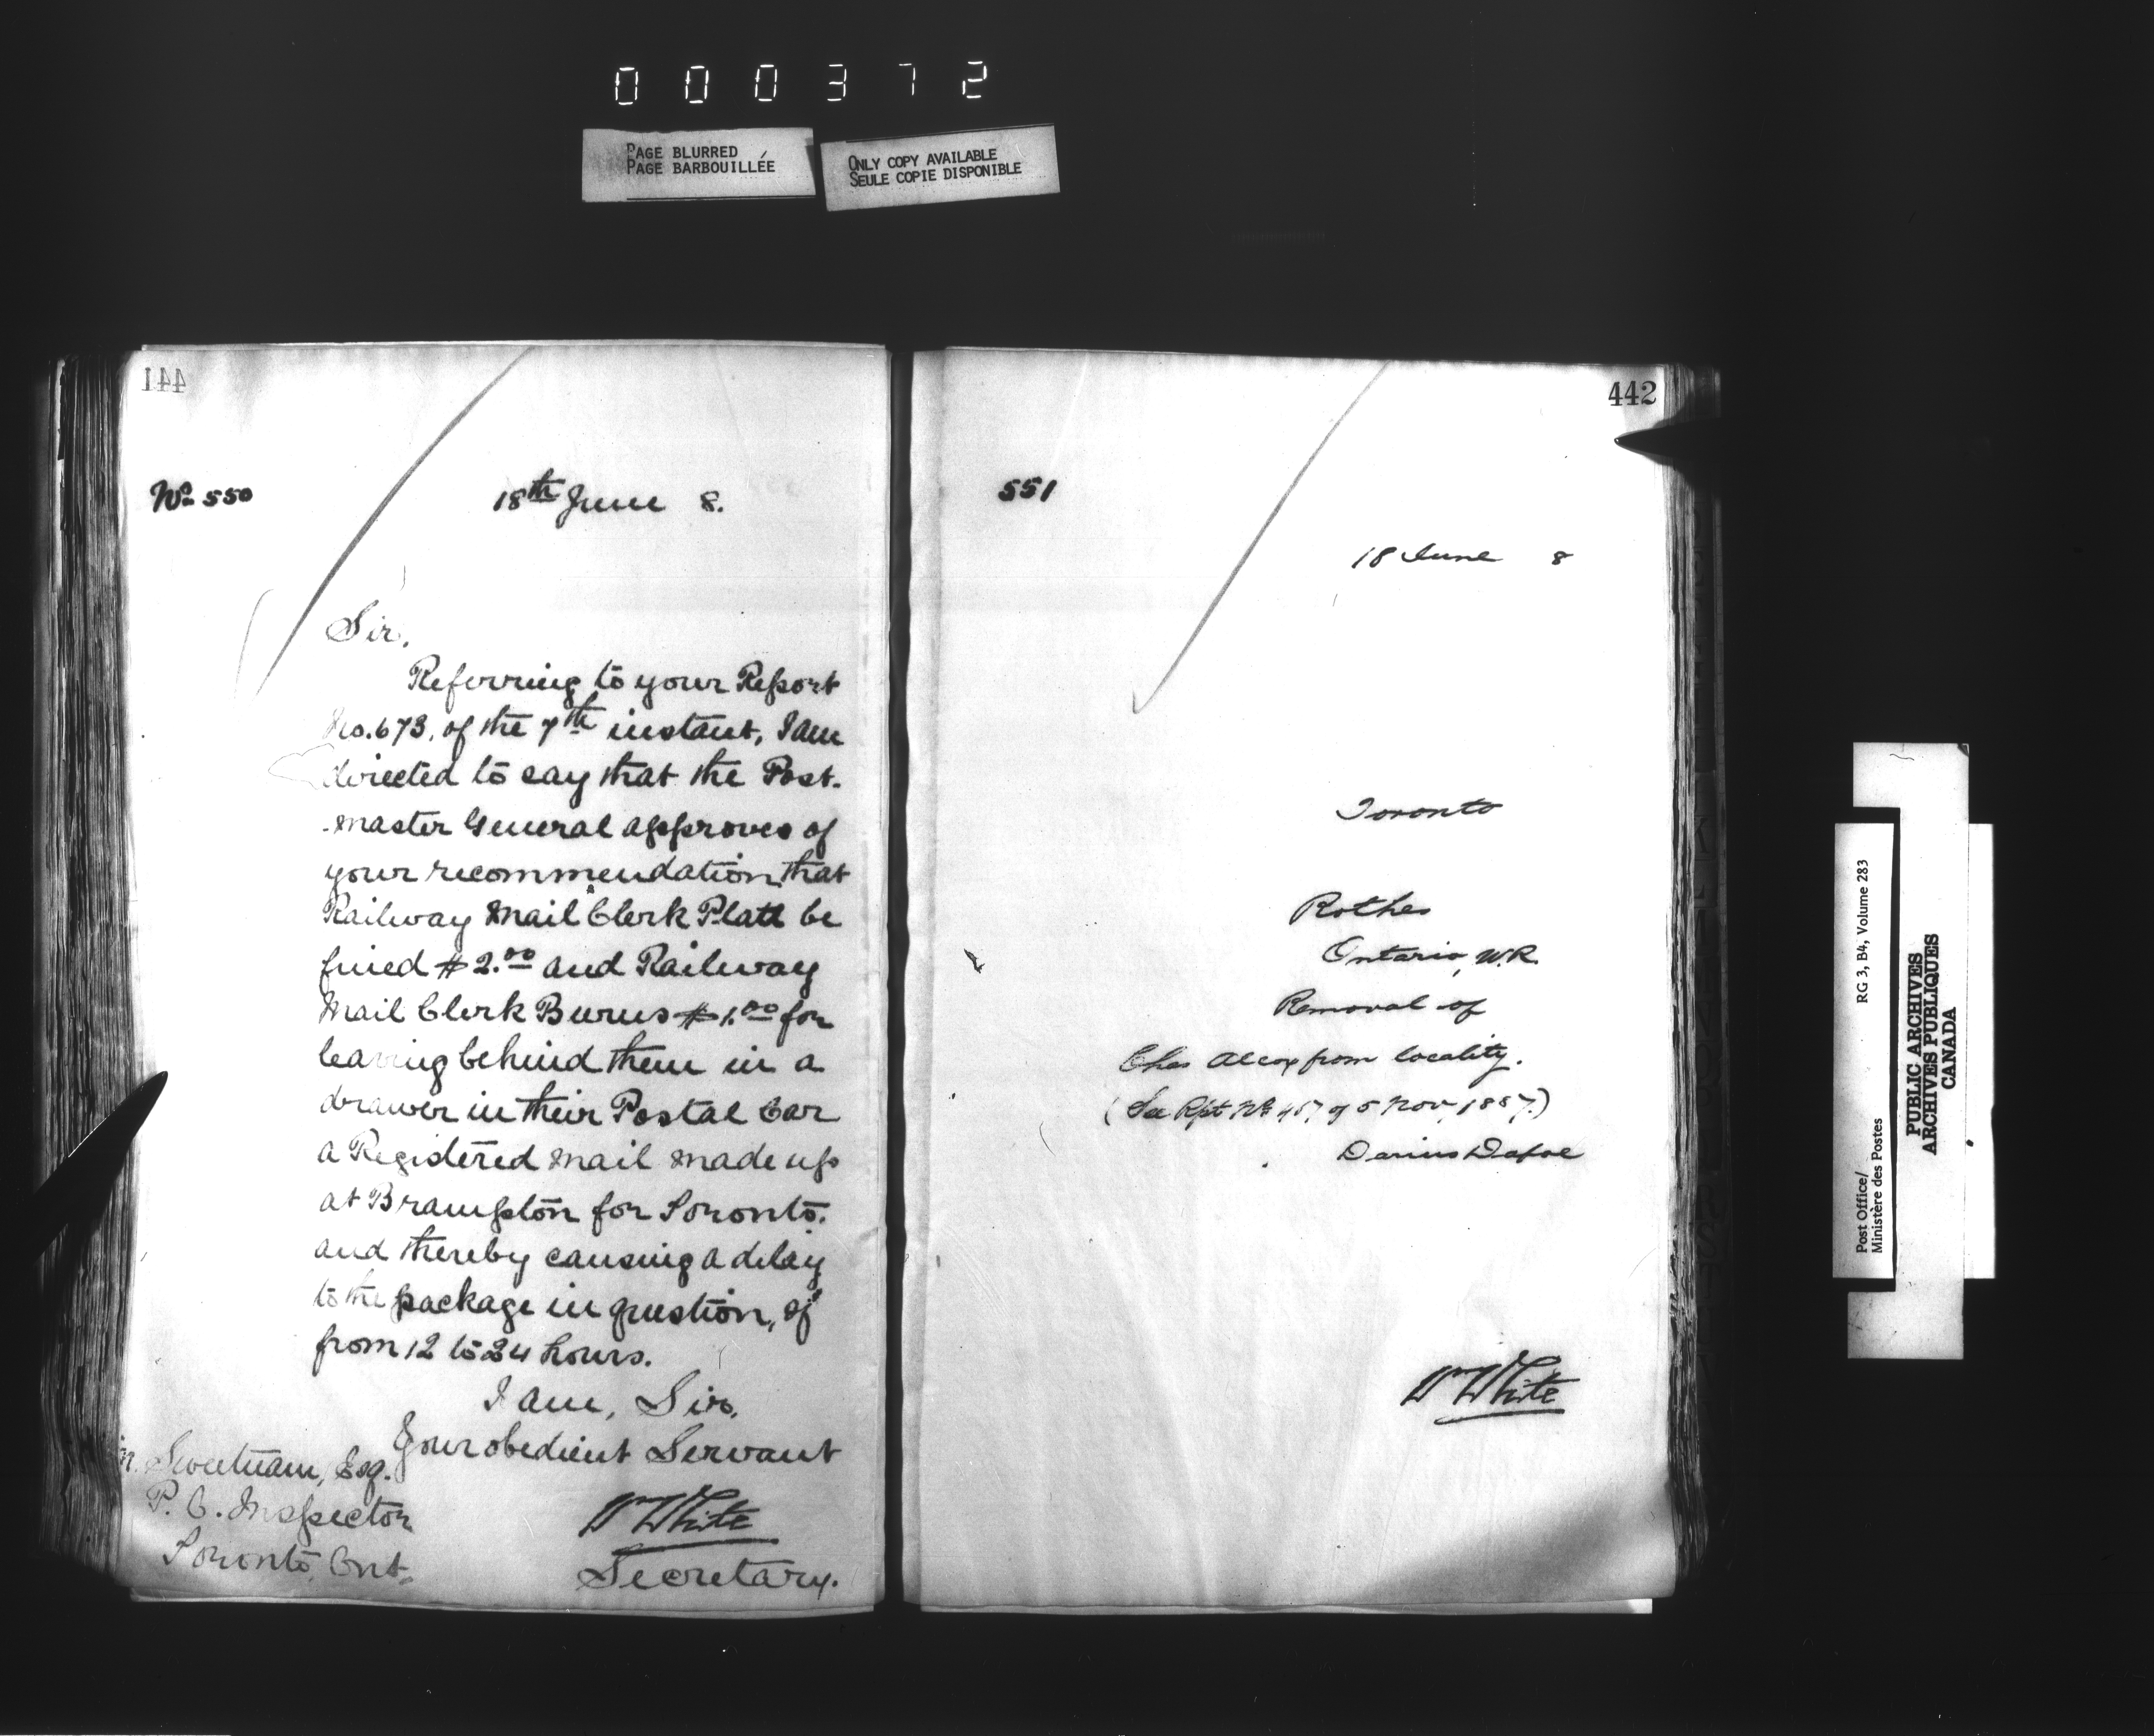 000372
PAGE BLURRED
PAGE BARBOUILLÉE
ONLY COPY AVAILABLE
SEULE COPIE DISPONIBLE
441
No 550
18th June 8.
Sir,
Referring to your Report
No. 673, of the 7th instant, I am
directed to say that the Post-
master General approves of
your recommendation that
Railway Mail Clerk Platt be
fined $2.00 and Railway
Mail Clerk Burns $1.00 for
leaving behind them in a
drawer in their Postal Car
a Registered Mail made up
at Brampton for Toronto,
and thereby causing a delay
to the package in question, of
from 12 to 24 hours.
I am, Sir,
Your obedient Servant
Sweetnam, Esq.
P. O. Inspector
Toronto, Ont.
Wm White
Secretary.
442
551
18 June 8
Toronto
Rothes
Ontario, W.R.
Removal of
Chas from locality.
(See Rpt No 457 of 5 Nov, 1887.)
Darius Dafoe
Wm White
Post Office/
Ministère des Postes
RG 3, B4, Volume 283
PUBLIC ARCHIVES
ARCHIVES PUBLIQUES
CANADA